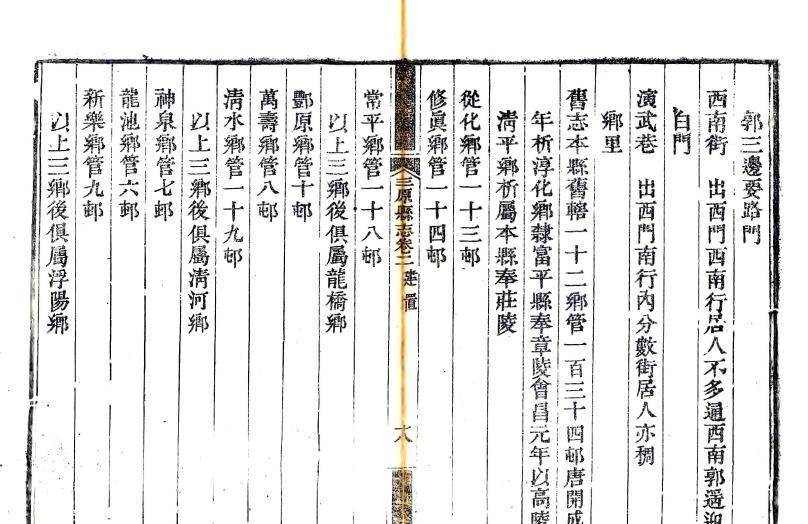 郭三邊要路門
西南街　出西門西南行居人不多通西南郭遥迎
白門
演武巷　出西門南行內分數街居人亦稠
鄉里
舊志本縣舊轄一十二鄉管一百三十四邨唐開成
年析淳化鄉隸富平縣奉章陵會昌元年以高陵
清平鄉析屬本縣奉莊陵
從化鄉管一十三邨
修眞鄉管一十四邨
三原縣志卷二　建置　十八
常平鄉管一十八邨
以上三鄉後俱屬龍橋鄉
酆原鄉管十邨
萬壽鄉管八邨
清水鄉管一十九邨
以上三鄉後俱屬清河鄉
神泉鄉管七邨
龍池鄉管六邨
新樂鄉管九邨
以上三鄉後俱屬浮陽鄉